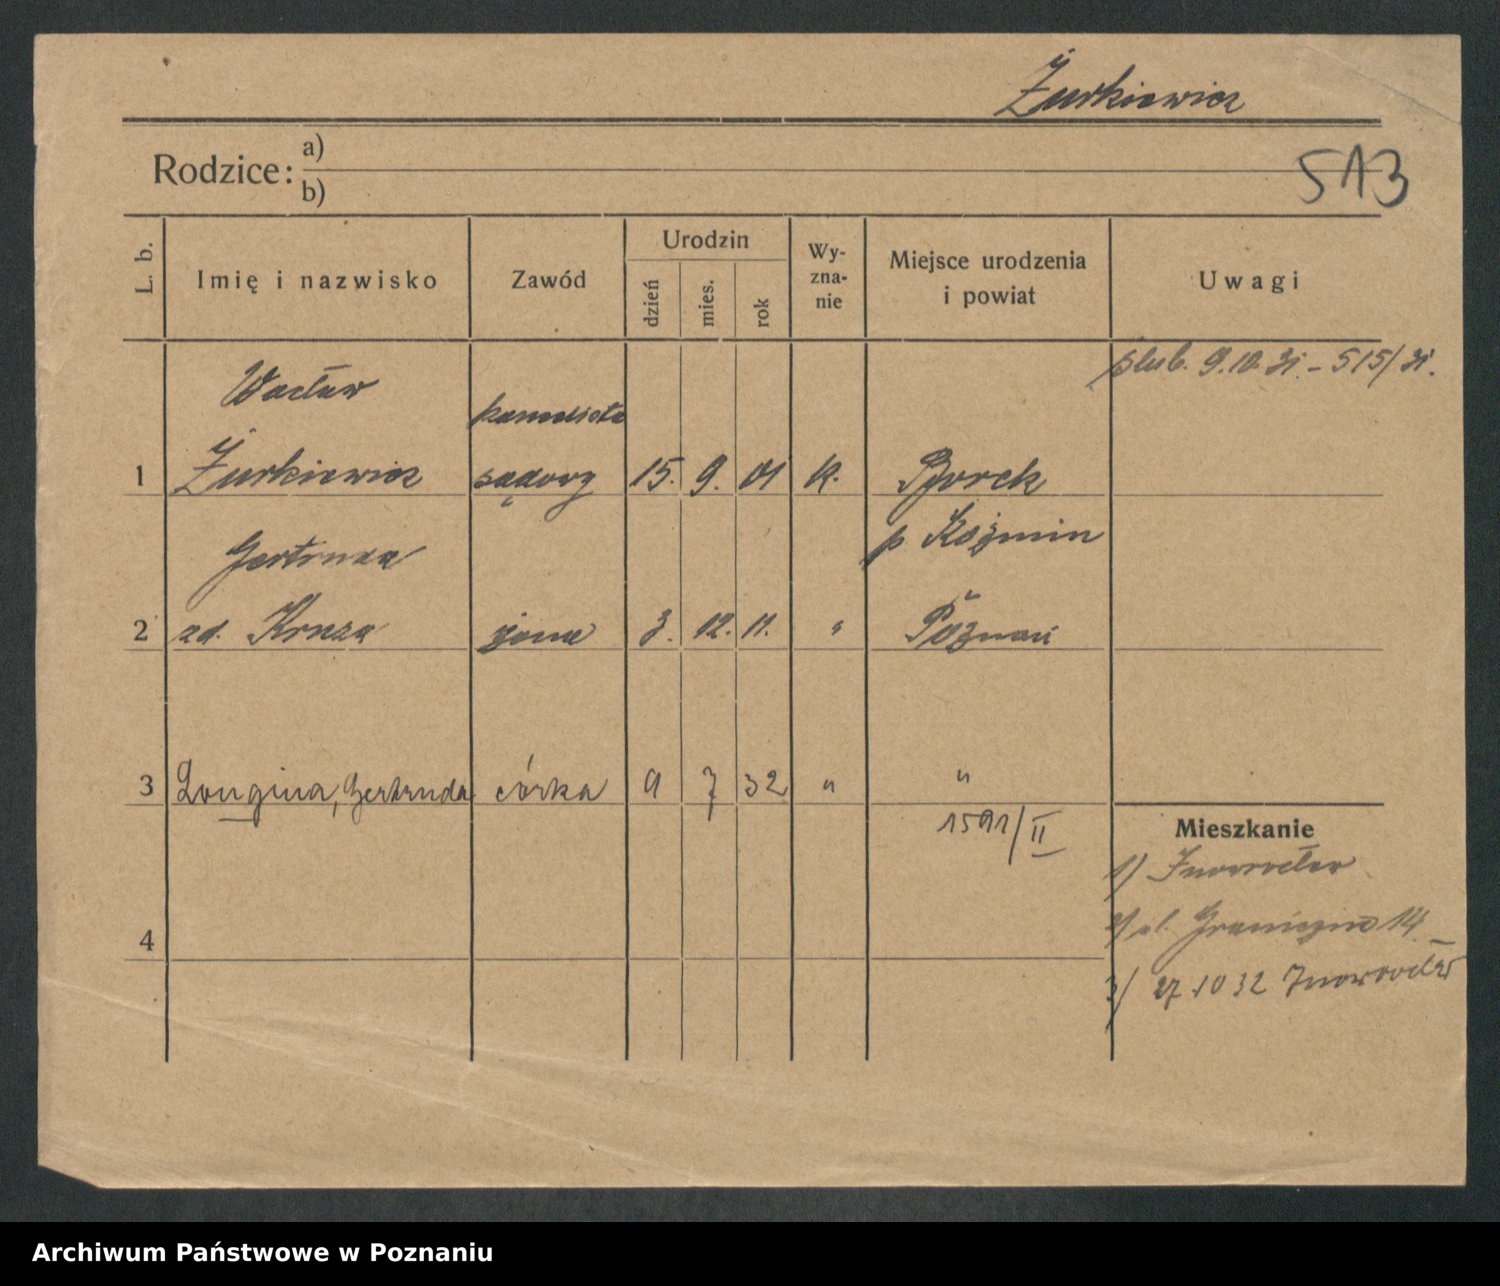 Żurkiewicz
Rodzice:
a)
b)
513
L. b.
Imię i nazwisko
Zawód
Urodzin
dzień
mies.
rok
Wy-
zna-
nie
Miejsce urodzenia
i powiat
Uwagi
ślub. 9.10.31. - 515/31.
Wacław
kancelista
1 Żurkiewicz sądowy 15. 9. 01 k. Borek
p Koźmin
Gertruda
2 zd. Kruza żona 3. 12. 11. " Poznań
3 Longina, Gertruda córka 9 7 32 " "
1591/II
Mieszkanie
1) Inowrocław
2/ ul. Graniczna 14
4
3/ 27 10 32 Inowrocław
Archiwum Państwowe w Poznaniu